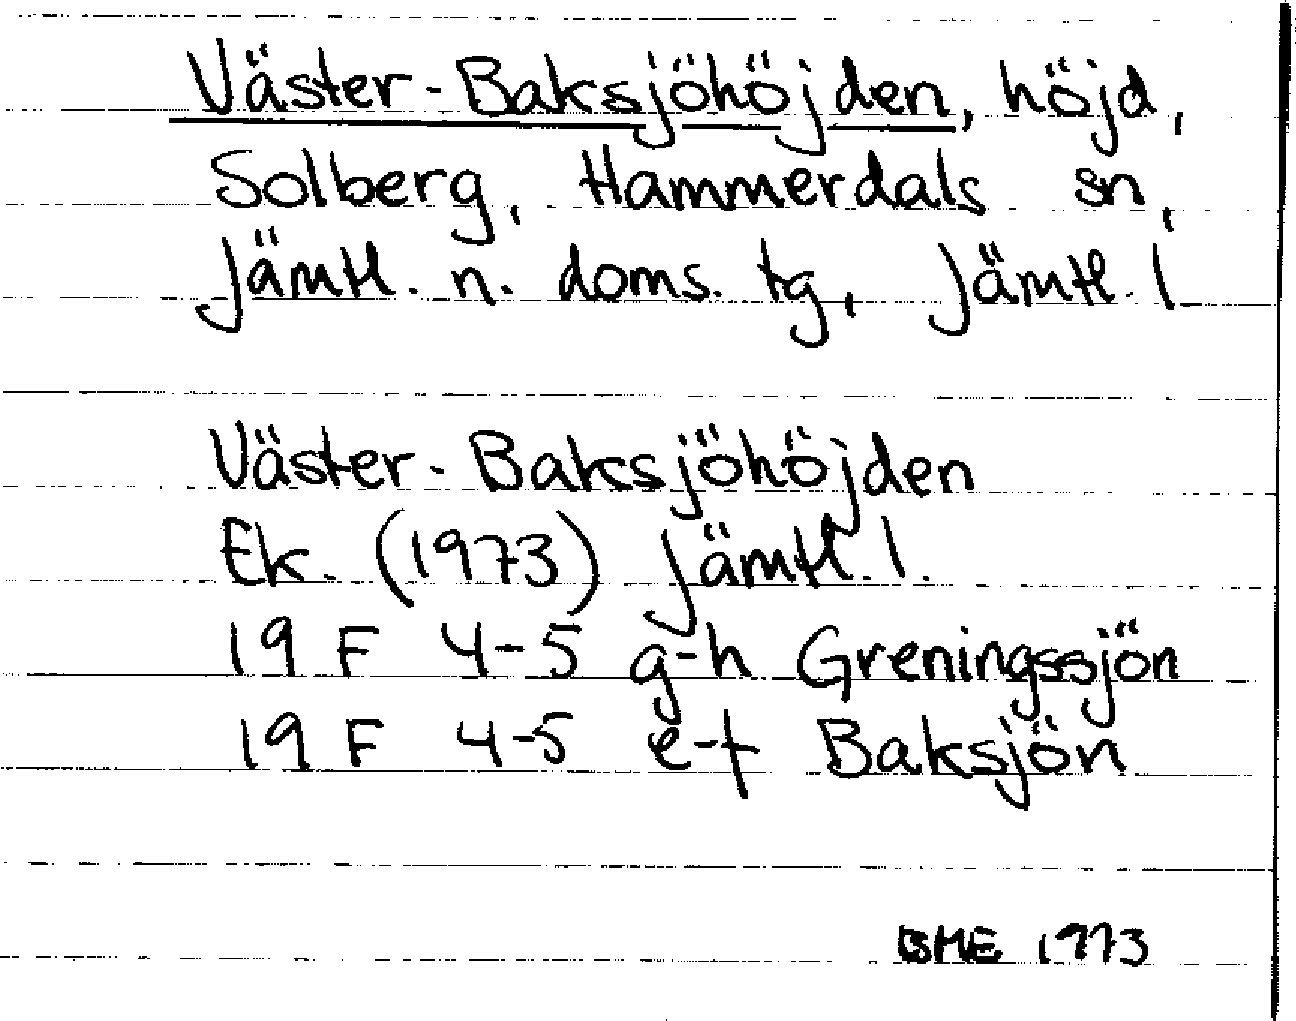 Väster-Baksjöhöjden, höjd,
Solberg, Hammerdals sn,
Jämtl. n. doms. tg, Jämtl. l.
Väster-Baksjöhöjden
Ek. (1973) Jämtl. l.
19 F 4-5 g-h Greningssjön
19 F 4-5 e-f Baksjön
BME 1973